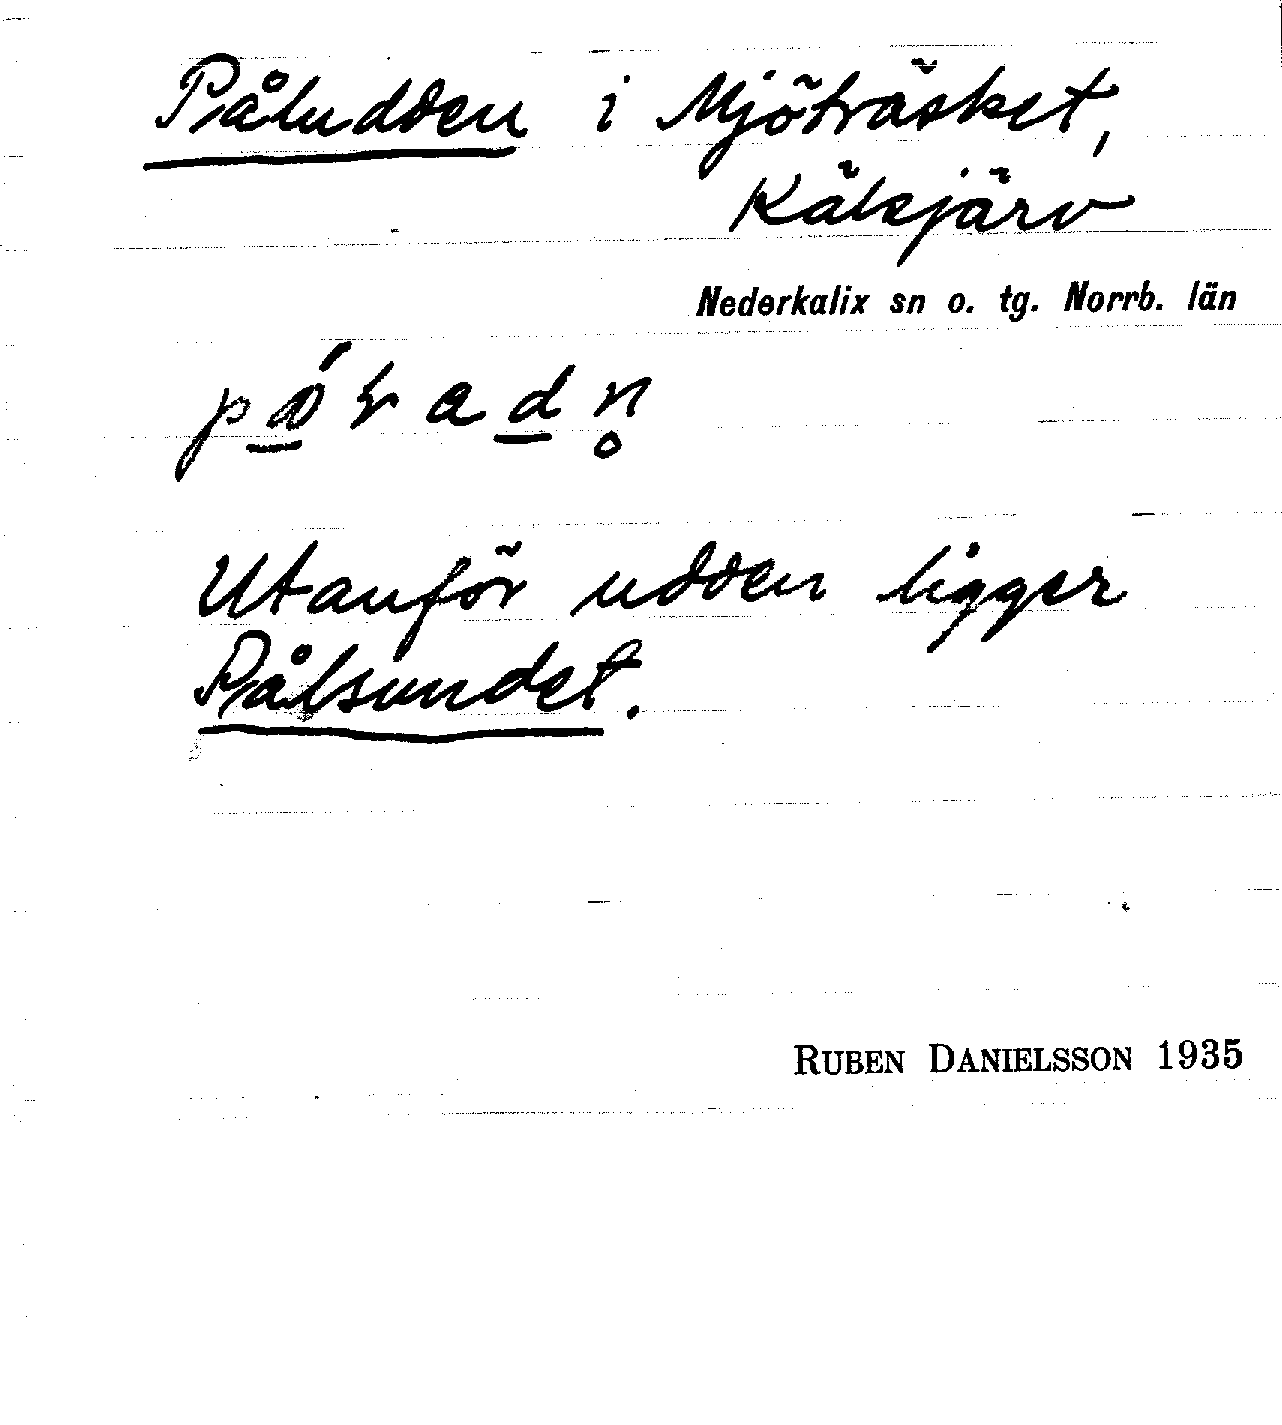 Påludden i Mjöträsket,
Kälsjärv
Nederkalix sn o. tg. Norrb. län
Utanför udden ligger
Pålsundet.
RUBEN DANIELSSON 1935